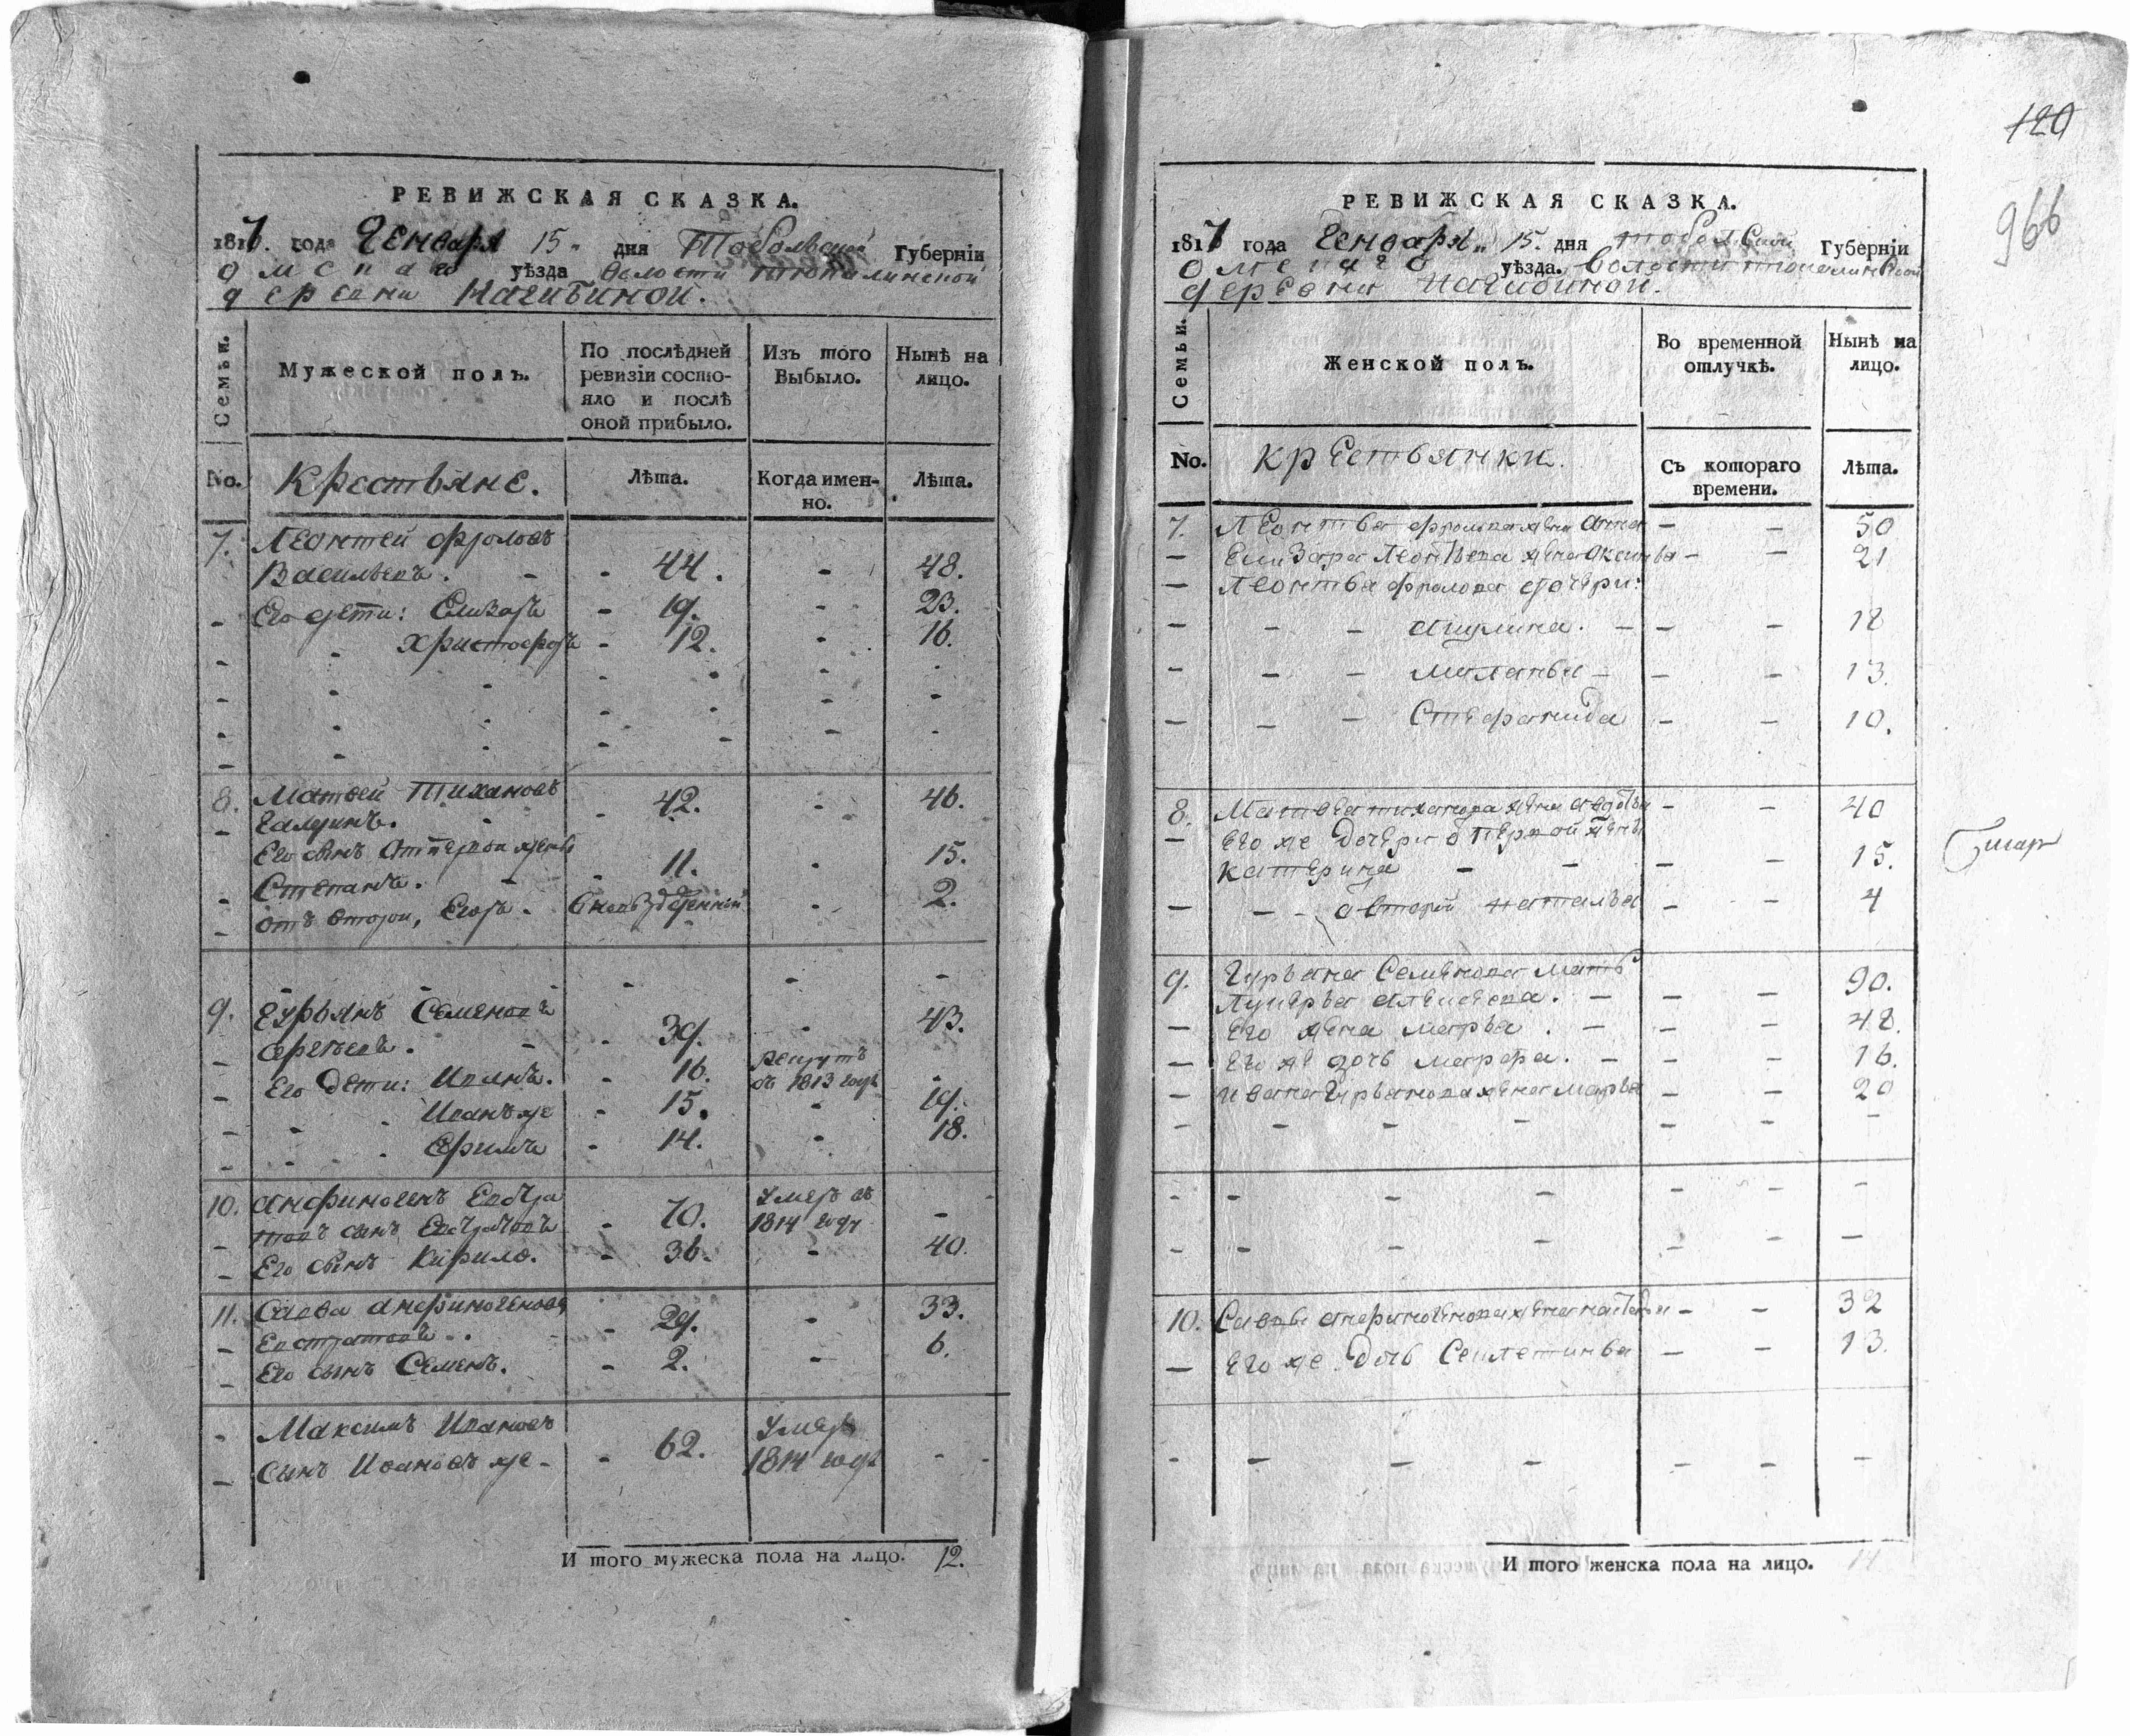 РЕВИЖСКАЯ СКАЗКА.
1817. года Генваря 15. дня Тобольской Губернїи
Омскаго уѣзда волости Тюкалинской
деревни Нагибиной.
Семьи.
Мужеской полъ.
По послѣдней ревизїи состояло и послѣ оной прибыло.
Изъ того Выбыло.
Нынѣ на лицо.
No.
Крестьяне.
Лѣта.
Когда именно.
Лѣта.
7. Леонтей Фроловъ
Васильевъ. - - 44. - 48.
- Его дети: Елизаръ - 19. - 23.
- - Христофоръ - 12. - 16.
8. Матвей Тихановъ
- Галдинъ. - 42. - 46.
Его сынъ от первой жены
- Степанъ. - - 11. - 15.
- отъ второй, Егоръ. - 2.
9. Гурьянъ Семеновъ
- - - 39. - 43.
- Его дети: Иванъ. - 16. рекрутъ
въ 1813 году -
- - Иванъ же - 15. - 19.
- - Ефимъ - 14. - 18.
10. Анфиногенъ Евстра
- товъ сынъ Евстратовъ - 70. Умеръ въ
1814 году -
- Его сынъ Кирило. - 36. - 40.
11. Савва Анфиногеновъ
- Евстратовъ. - 29. - 33.
- Его сынъ Семенъ. - 2. - 6.
- Максимъ Ивановъ
- сынъ Ивановъ же - - 62. Умеръ
1814 году -
И того мужеска пола на лицо. 12.
120
966
РЕВИЖСКАЯ СКАЗКА.
1817 года Генваря 15. дня Тобольской Губернїи
Омскаго уѣзда. волости Тюкалинской
деревни Нагибиной.
Семьи.
Женской полъ.
Во временной отлучкѣ.
Нынѣ на лицо.
No.
Крестьянки.
Съ котораго времени.
Лѣта.
7. Леонтья Фролова жена Анна - - 50
- Елизара Леонтьева жена Аксинья - - 21
- Леонтья Фролова дочери:
- - - Акулина. - - - 18
- - - Миланья - - - 13.
- - - Стефанида - - 10.
8. Матвея Тиханова жена Авдотья - - 40
- Его же дочери о первой жены
Катерина - - - - 15.
- - - о второй Наталья - - 4
9. Гурьяна Семенова мать
Лукерья Алексеева. - - - 90.
- Его жена Марья. - - - 48.
- Его же дочь Марфа. - - - 16.
- Ивана Гурьянова жена Марья - - 20
10. Саввы Анфиногенова жена - - 32
- Его же дочь - - 13.
И того женска пола на лицо.